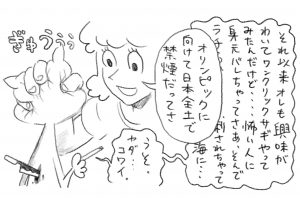 それ以来オレも興味が
わいてワンクリックサギやって
みたんだけど・・・怖い人に
身元バレちゃってさぁ、そんで
ラチ・・・刺されちゃって
海に・・・
オリンピックに
向けて日本全土で
禁煙だってさ
うっそ。
ヤダー
コワイ。
ぎゅううぅ